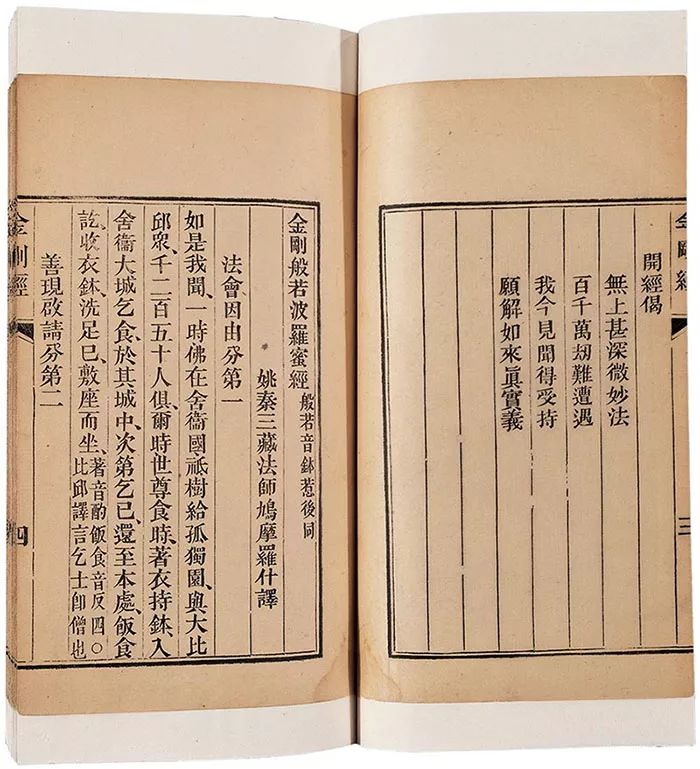 金剛經
三
開經偈
無上甚深微妙法
百千萬刼難遭遇
我今見聞得受持
願解如來眞實義
金剛般若波羅蜜經 般若音鉢惹後同
姚秦三藏法師鳩摩羅什譯
法會因由分第一
如是我聞、一時佛在舍衞國祇樹給孤獨園、與大比
邱衆、千二百五十人俱、爾時世尊食時、著衣持鉢、入
舍衞大城乞食、於其城中、次第乞已、還至本處、飯食
訖、收衣鉢、洗足已、敷座而坐、著音酌飯食音反四〇
比邱譯言乞士卽僧也
善現啟請分第二
金剛經
四